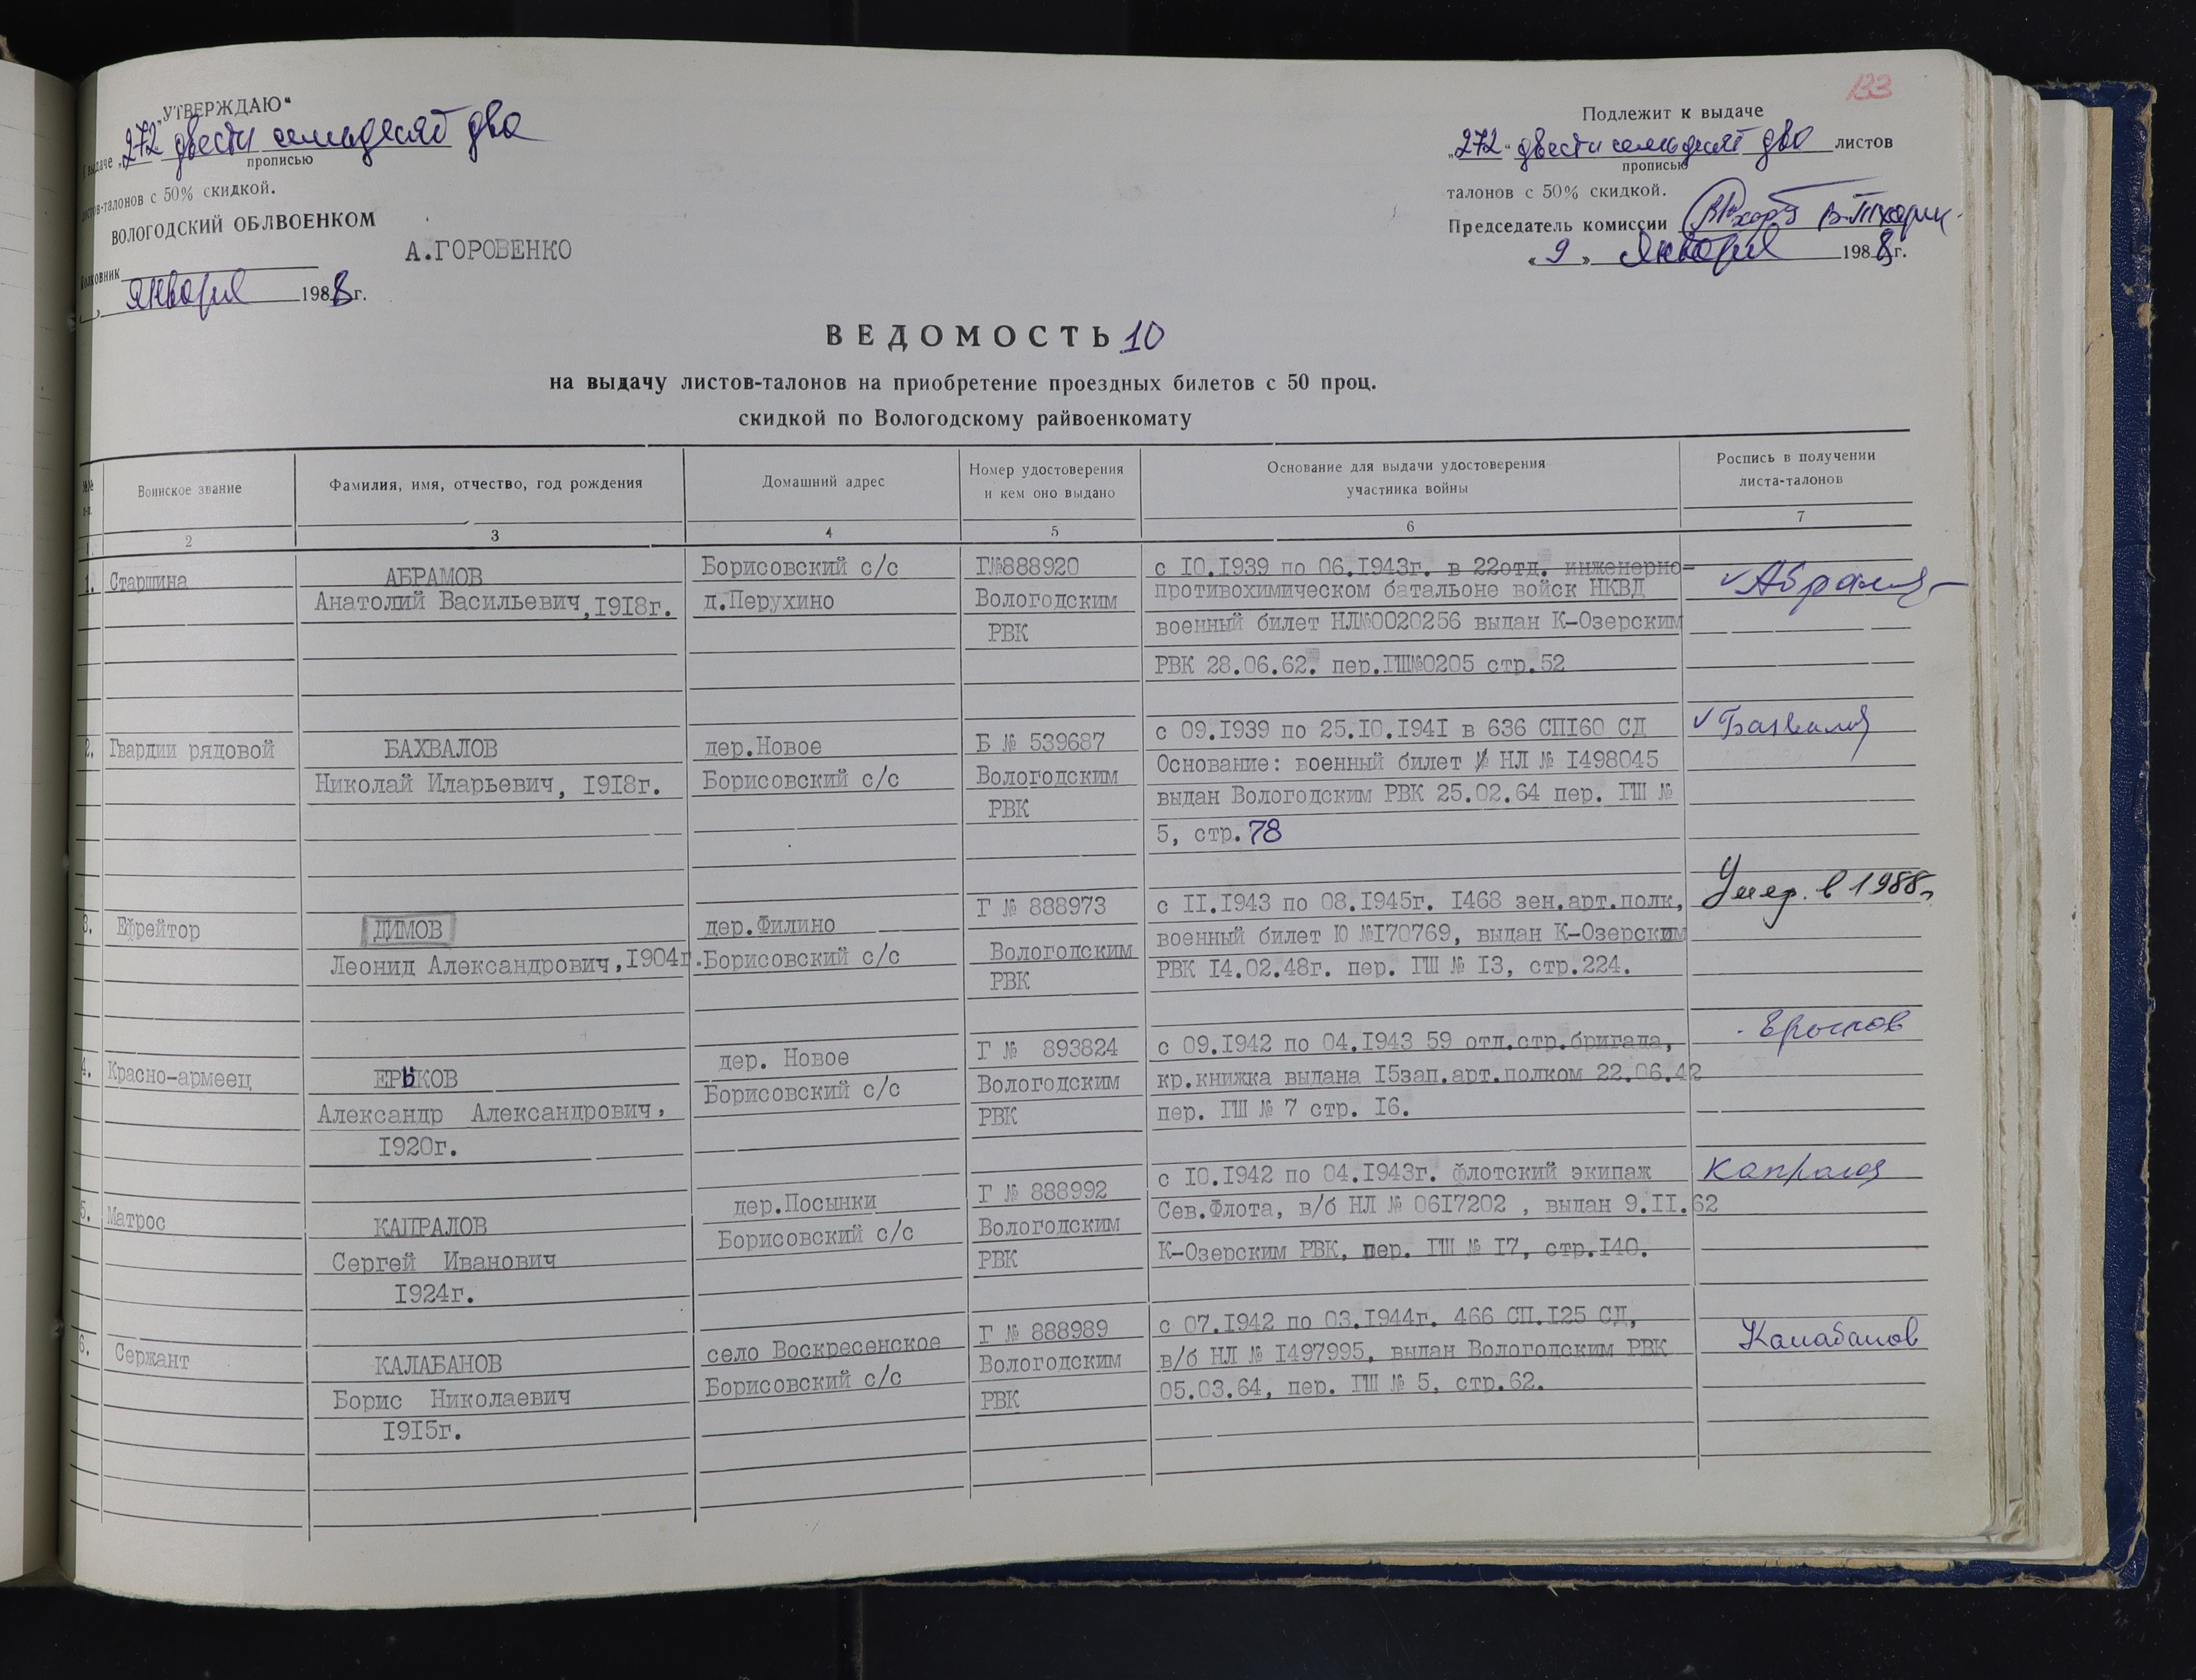 133
„УТВЕРЖДАЮ“
К выдаче „272“ двести семьдесят два
прописью
листов-талонов с 50% скидкой.
ВОЛОГОДСКИЙ ОБЛВОЕНКОМ
Полковник
А.ГОРОВЕНКО
января 1988 г.
Подлежит к выдаче
„272“ двести семьдесят два листов
прописью
талонов с 50% скидкой.
Председатель комиссии
« 9 » Января 1988 г.
ВЕДОМОСТЬ 10
на выдачу листов-талонов на приобретение проездных билетов с 50 проц.
скидкой по Вологодскому райвоенкомату
№№ п-п.
Воинское звание
Фамилия, имя, отчество, год рождения
Домашний адрес
Номер удостоверения
и кем оно выдано
Основание для выдачи удостоверения
участника войны
Роспись в получении
листа-талонов
1 2 3 4 5 6 7
1. Старшина
АБРАМОВ
Анатолий Васильевич,1918г.
Борисовский с/с
д.Перухино
Г№888920
Вологодским
РВК
с 10.1939 по 06.1943г. в 22отд. инженерно-
противохимическом батальоне войск НКВД
военный билет НЛ№0020256 выдан К-Озерским
РВК 28.06.62. пер.ГШ№0205 стр.52
2. Гвардии рядовой
БАХВАЛОВ
Николай Иларьевич, 1918г.
дер.Новое
Борисовский с/с
Б № 539687
Вологодским
РВК
с 09.1939 по 25.10.1941 в 636 СП160 СД
Основание: военный билет НЛ № 1498045
выдан Вологодским РВК 25.02.64 пер. ГШ №
5, стр.78
✓ Бахвалов
3. Ефрейтор
ДИМОВ
Леонид Александрович,1904г.
дер.Филино
Борисовский с/с
Г № 888973
Вологодским
РВК
с 11.1943 по 08.1945г. 1468 зен.арт.полк,
военный билет Ю №170769, выдан К-Озерским
РВК 14.02.48г. пер. ГШ № 13, стр.224.
Умер. в 1988г.
4. Красно-армеец
ЕРЫКОВ
Александр Александрович,
1920г.
дер. Новое
Борисовский с/с
Г № 893824
Вологодским
РВК
с 09.1942 по 04.1943 59 отд.стр.бригада,
кр.книжка выдана 15зап.арт.полком 22.06.42
пер. ГШ № 7 стр. 16.
Ерыков
5. Матрос
КАПРАЛОВ
Сергей Иванович
1924г.
дер.Посынки
Борисовский с/с
Г № 888992
Вологодским
РВК
с 10.1942 по 04.1943г. флотский экипаж
Сев.Флота, в/б НЛ № 0617202 , выдан 9.11.62
К-Озерским РВК, пер. ГШ № 17, стр.140.
6. Сержант
КАЛАБАНОВ
Борис Николаевич
1915г.
село Воскресенское
Борисовский с/с
Г № 888989
Вологодским
РВК
с 07.1942 по 03.1944г. 466 СП.125 СД,
в/б НЛ № 1497995, выдан Вологодским РВК
05.03.64, пер. ГШ № 5, стр.62.
Калабанов